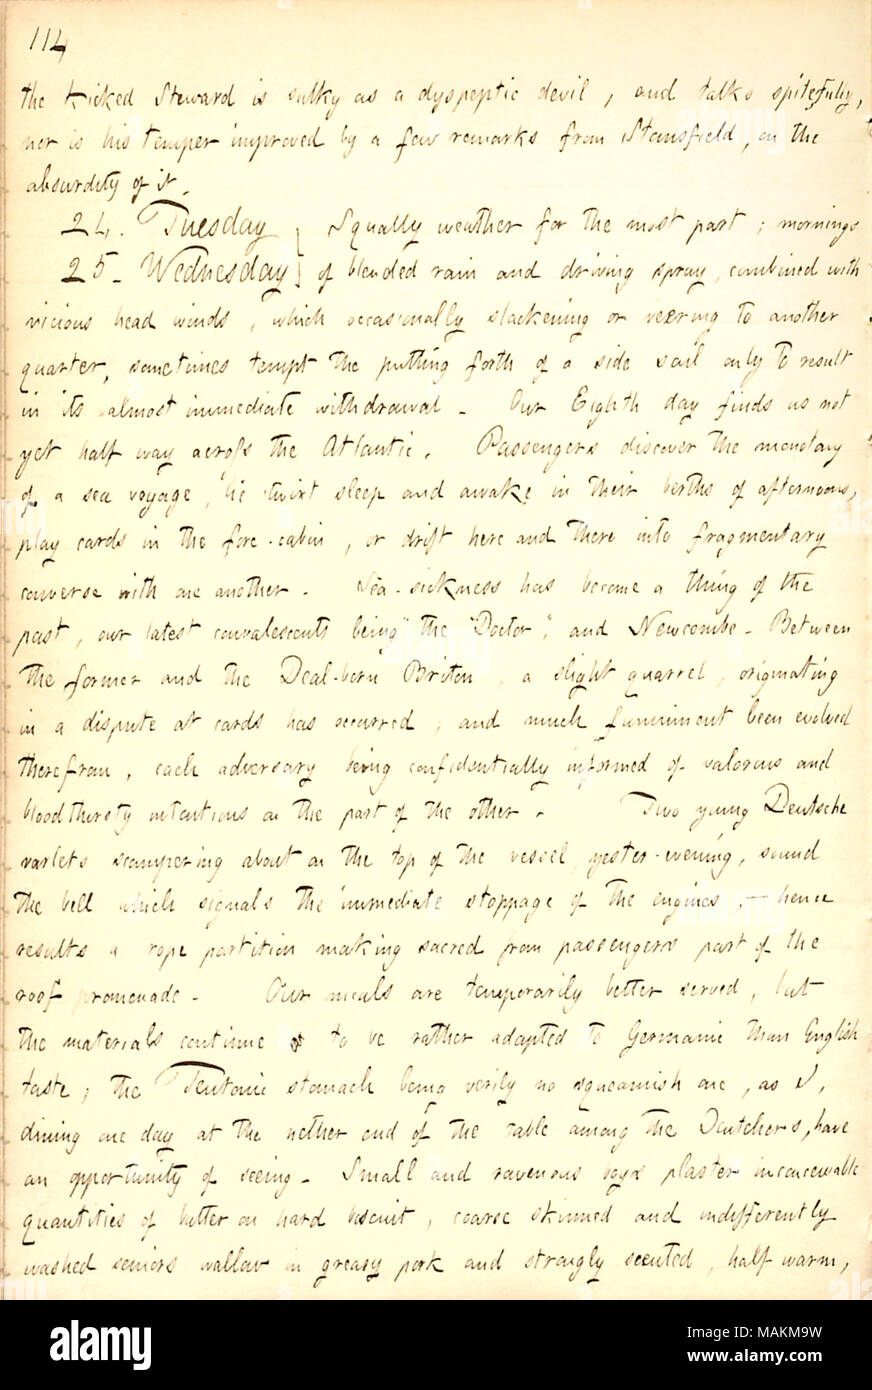 114
the kicked Steward is sulky as a dyspeptic devil, and talks spitefully,
nor is his temper improved by a few remarks from Stansfield, on the
absurdity of it.
24. Tuesday } Squally weather for the most part; mornings
25. Wednesday } of blended rain and driving spray, combined with
vicious head winds, which occasionally slackening or veering to another
quarter, sometimes tempt the putting forth of a side sail only to result
in its almost immediate withdrawal. Our Eighth day finds us not
yet half way across the Atlantic. Passengers discover the monotony
of a sea voyage, lie twixt sleep and awake in their berths of afternoons,
play cards in the fore-cabin, or drift here and there into fragmentary
converse with one another. Sea-sickness has become a thing of the
past, our latest convalescents being "the "Doctor", and Newcombe. Between
the former and the Deal-born Briton, a slight quarrel, originating
in a dispute at cards has occurred; and much funniment been evolved
therefrom, each adversary being confidentially informed of valorous and
bloodthirsty intentions on the part of the other. Two young Deutsche
varlets scampering about on the top of the vessel, yester-evening, sound
the bell which signals the immediate stoppage of the engines, — hence
results a rope partition making sacred from passengers part of the
roof promenade. Our meals are temporarily better served, but
the materials continue to be rather adapted to Germanic than English
taste; the Teutonic stomach being verily no squeamish one, as I,
dining one day at the nether end of the table among the Deutchers, have
an opportunity of seeing. Small and ravenous boys plaster inconceivable
quantities of butter on hard biscuit, coarse skinned and indifferently
washed seniors wallow in greasy pork and strongly scented, half warm,
alamy
Image ID: MAKM9W
www.alamy.com